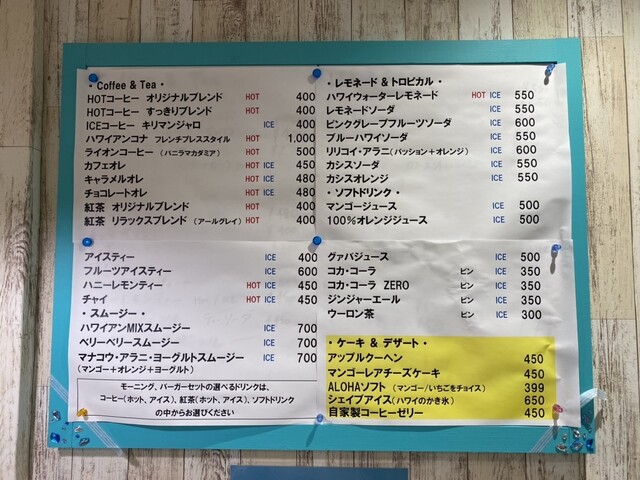 ・Coffee & Tea・
HOTコーヒー オリジナルブレンド HOT 400
HOTコーヒー すっきりブレンド HOT 400
ICEコーヒー キリマンジャロ ICE 400
ハワイアンコナ フレンチプレススタイル HOT 1,000
ライオンコーヒー (バニラマカダミア) HOT 500
カフェオレ HOT ICE 450
キャラメルオレ HOT ICE 480
チョコレートオレ HOT ICE 480
紅茶 オリジナルブレンド HOT 400
紅茶 リラックスブレンド (アールグレイ) HOT 400
アイスティー ICE 400
フルーツアイスティー ICE 600
ハニーレモンティー HOT ICE 450
チャイ HOT ICE 450
・スムージー・
ハワイアンMIXスムージー ICE 700
ベリーベリースムージー ICE 700
マナコウ・アラニ・ヨーグルトスムージー ICE 700
(マンゴー+オレンジ+ヨーグルト)
モーニング、バーガーセットの選べるドリンクは、
コーヒー(ホット、アイス)、紅茶(ホット、アイス)、ソフトドリンク
の中からお選びください
・レモネード & トロピカル・
ハワイウォーターレモネード HOT ICE 550
レモネードソーダ ICE 550
ピンクグレープフルーツソーダ ICE 600
ブルーハワイソーダ ICE 550
リリコイ・アラニ(パッション+オレンジ) ICE 600
カシスソーダ ICE 550
カシスオレンジ ICE 550
・ソフトドリンク・
マンゴージュース ICE 500
100%オレンジジュース ICE 500
グァバジュース ICE 500
コカ・コーラ ビン ICE 350
コカ・コーラ ZERO ビン ICE 350
ジンジャーエール ビン ICE 350
ウーロン茶 ビン ICE 300
・ケーキ & デザート・
アップルクーヘン 450
マンゴーレアチーズケーキ 450
ALOHAソフト (マンゴー/いちごをチョイス) 399
シェイブアイス(ハワイのかき氷) 650
自家製コーヒーゼリー 450